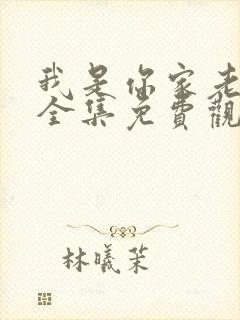 我是你家老
全集免費觀
林曦茉